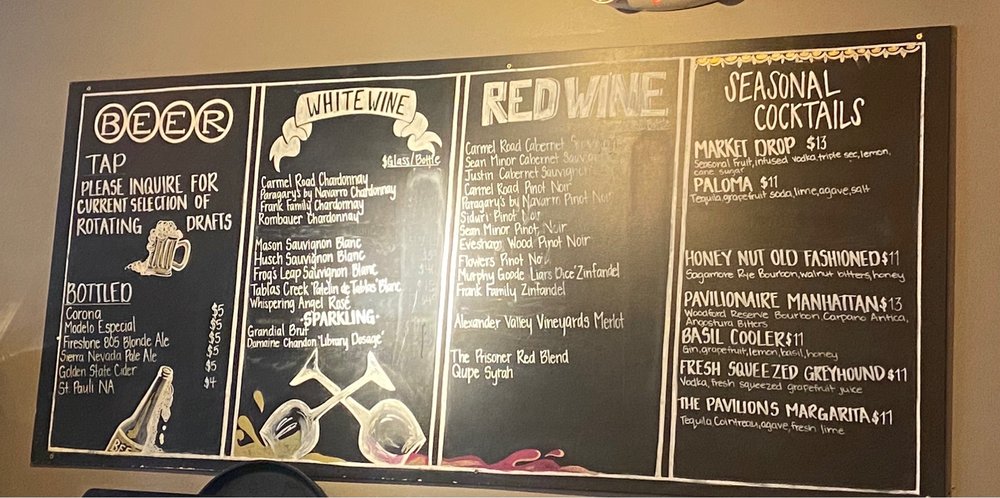 BEER
TAP
PLEASE INQUIRE FOR
CURRENT SELECTION OF
ROTATING DRAFTS
BOTTLED
Corona $5
Modelo Especial $5
Firestone 805 Blonde Ale $5
Sierra Nevada Pale Ale $5
Golden State Cider $5
St. Pauli NA $4
WHITE WINE
$Glass/Bottle
Carmel Road Chardonnay
Paragary's by Navarro Chardonnay
Frank Family Chardonnay
Rombauer Chardonnay
Mason Sauvignon Blanc
Husch Sauvignon Blanc
Frog's Leap Sauvignon Blanc
Tablas Creek Patelin de Tablas Blanc
Whispering Angel Rosé
·SPARKLING·
Grandial Brut
Domaine Chandon 'Library Dosage'
RED WINE
Carmel Road Cabernet
Sean Minor Cabernet
Justin Cabernet Sauvignon
Carmel Road Pinot Noir
Paragary's by Navarro Pinot Noir
Siduri Pinot Noir
Sean Minor Pinot Noir
Evesham Wood Pinot Noir
Flowers Pinot Noir
Murphy Goode Liars Dice' Zinfandel
Frank Family Zinfandel
Alexander Valley Vineyards Merlot
The Prisoner Red Blend
Qupe Syrah
SEASONAL
COCKTAILS
MARKET DROP $13
Seasonal fruit, infused vodka, triple sec, lemon,
cane sugar
PALOMA $11
Tequila, grapefruit soda, lime, agave, salt
HONEY NUT OLD FASHIONED $11
Sagamore Rye Bourbon, walnut bitters, honey
PAVILIONAIRE MANHATTAN $13
Woodford Reserve Bourbon, Carpano Antica,
Angostura Bitters
BASIL COOLER $11
Gin, grapefruit, lemon, basil, honey
FRESH SQUEEZED GREYHOUND $11
Vodka, fresh squeezed grapefruit juice
THE PAVILIONS MARGARITA $11
Tequila, Cointreau, agave, fresh lime